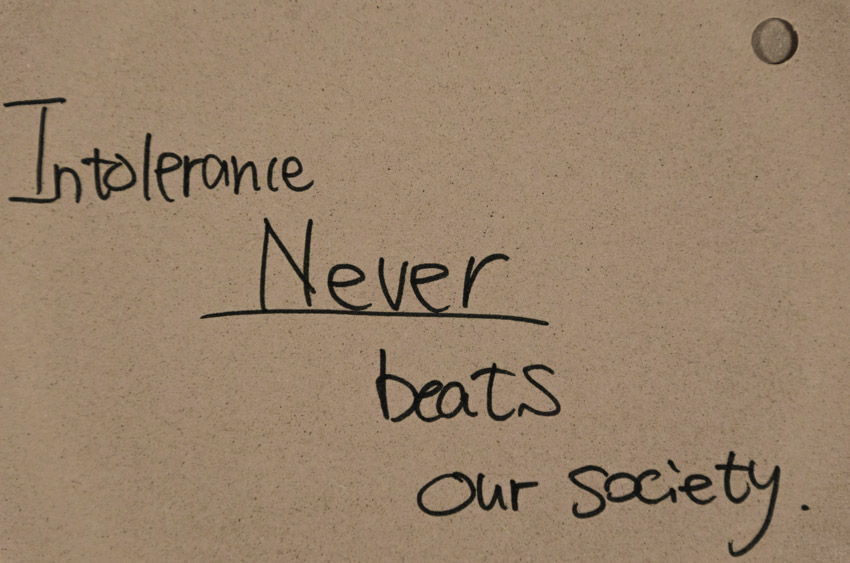 Intolerance
Never
beats
our society.